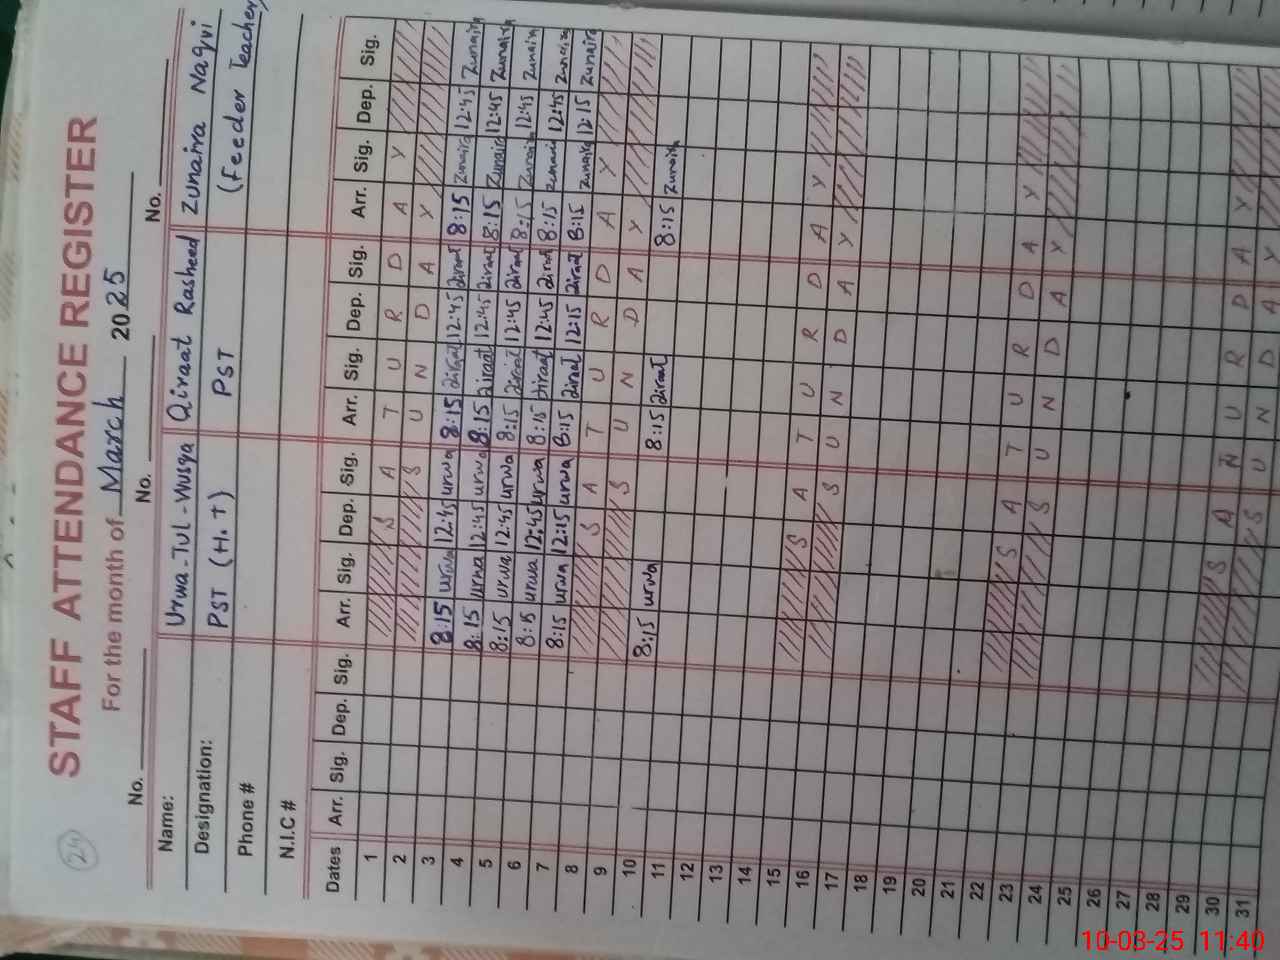 24
STAFF ATTENDANCE REGISTER
For the month of March 2025
No. No. No. No.
Name: Urwa-Tul-Wusqa Qiraat Rasheed Zunaira Naqvi
Designation: PST (H.T) PST (Feeder Teacher)
Phone #
N.I.C #
Dates Arr. Sig. Dep. Sig. Arr. Sig. Dep. Sig. Arr. Sig. Dep. Sig. Arr. Sig. Dep. Sig.
1 S A T U R D A Y
2 S U N D A Y
3 8:15 urwa 12:45 urwa 8:15 Qiraat 12:45 Qiraat 8:15 Zunaira 12:45 Zunaira
4 8:15 urwa 12:45 urwa 8:15 Qiraat 12:45 Qiraat 8:15 Zunaira 12:45 Zunaira
5 8:15 urwa 12:45 urwa 8:15 Qiraat 12:45 Qiraat 8:15 Zunaira 12:45 Zunaira
6 8:15 urwa 12:45 urwa 8:15 Qiraat 12:45 Qiraat 8:15 Zunaira 12:45 Zunaira
7 8:15 urwa 12:15 urwa 8:15 Qiraat 12:15 Qiraat 8:15 Zunaira 12:15 Zunaira
8 S A T U R D A Y
9 S U N D A Y
10 8:15 urwa 8:15 Qiraat 8:15 Zunaira
11
12
13
14
15 S A T U R D A Y
16 S U N D A Y
17
18
19
20
21
22 S A T U R D A Y
23 S U N D A Y
24
25
26
27
28
29 S A T U R D A Y
30 S U N D A Y
31
10-03-25 11:40